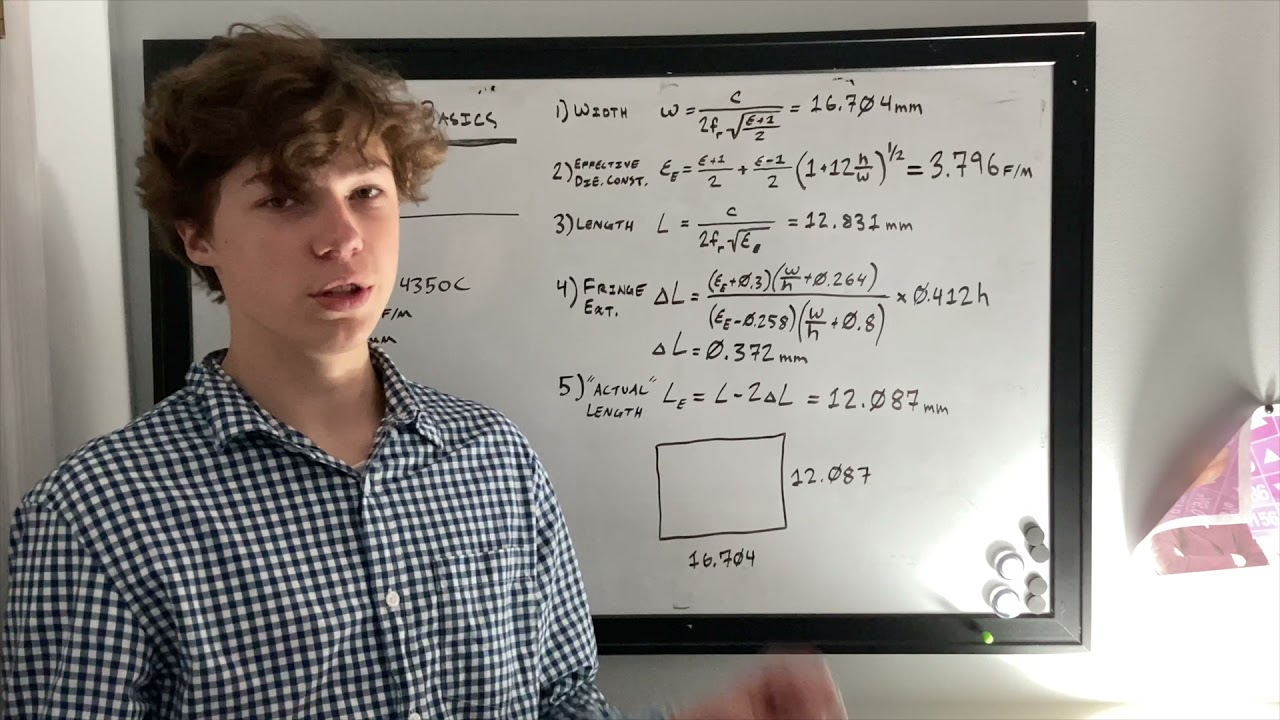 BASICS
4350C
F/M
1) WIDTH W = c / (2fᵣ√((ε+1)/2)) = 16.7Ø4 mm
2) EFFECTIVE DIE. CONST. εE = (ε+1)/2 + (ε-1)/2 (1+12 h/w)^1/2 = 3.796 F/M
3) LENGTH L = c / (2fᵣ√εe) = 12.831 mm
4) FRINGE EXT. ΔL = (εE+Ø.3)(w/h+Ø.264) / (εE-Ø.258)(w/h+Ø.8) × Ø.412h
ΔL = Ø.372 mm
5) "ACTUAL" LENGTH LE = L - 2ΔL = 12.Ø87 mm
12.Ø87
16.7Ø4